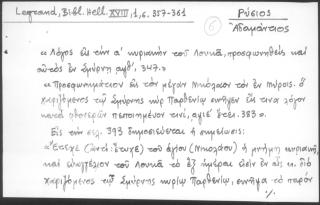 Legrand, Bibl. Hell. XVIII, 1, σ. 357-361
Ρύσιος
Ἀδαμάντιος
6
« Λόγος εἰς τὴν α' κυριακὴν τοῦ Λουκᾶ, προσφωνηθεὶς καὶ
αὐτὸς ἐν Σμύρνῃ αψθ', 347.»
« Προσφωνημάτιον εἰς τὸν μέγαν Νικόλαον τὸν ἐν Μύροις. ὃ
χαριζόμενος τῷ Σμύρνης κὺρ Παρθενίῳ ἐνῆψεν εἰς τινα λόγον
κατὰ φθορεῶν πεποιημένον τινί, ἔτει 383.»
Εἰς τὴν σελ. 393 δημοσιεύεται ἡ σημείωσις:
« Ἔτυχε (ἀντὶ: ἔτυχε) τοῦ ἁγίου (Νικολάου) ἡ μνήμη κυριακῇ,
καὶ εὐαγγέλιον τοῦ Λουκᾶ τὸ ἓξ ἡμέραι εἰσὶν ἐν αἷς κ. διὸ
χαριζόμενος τῷ Σμύρνης κυρίῳ Παρθενίῳ, ἐνῆψα τὸ παρὸν
./.